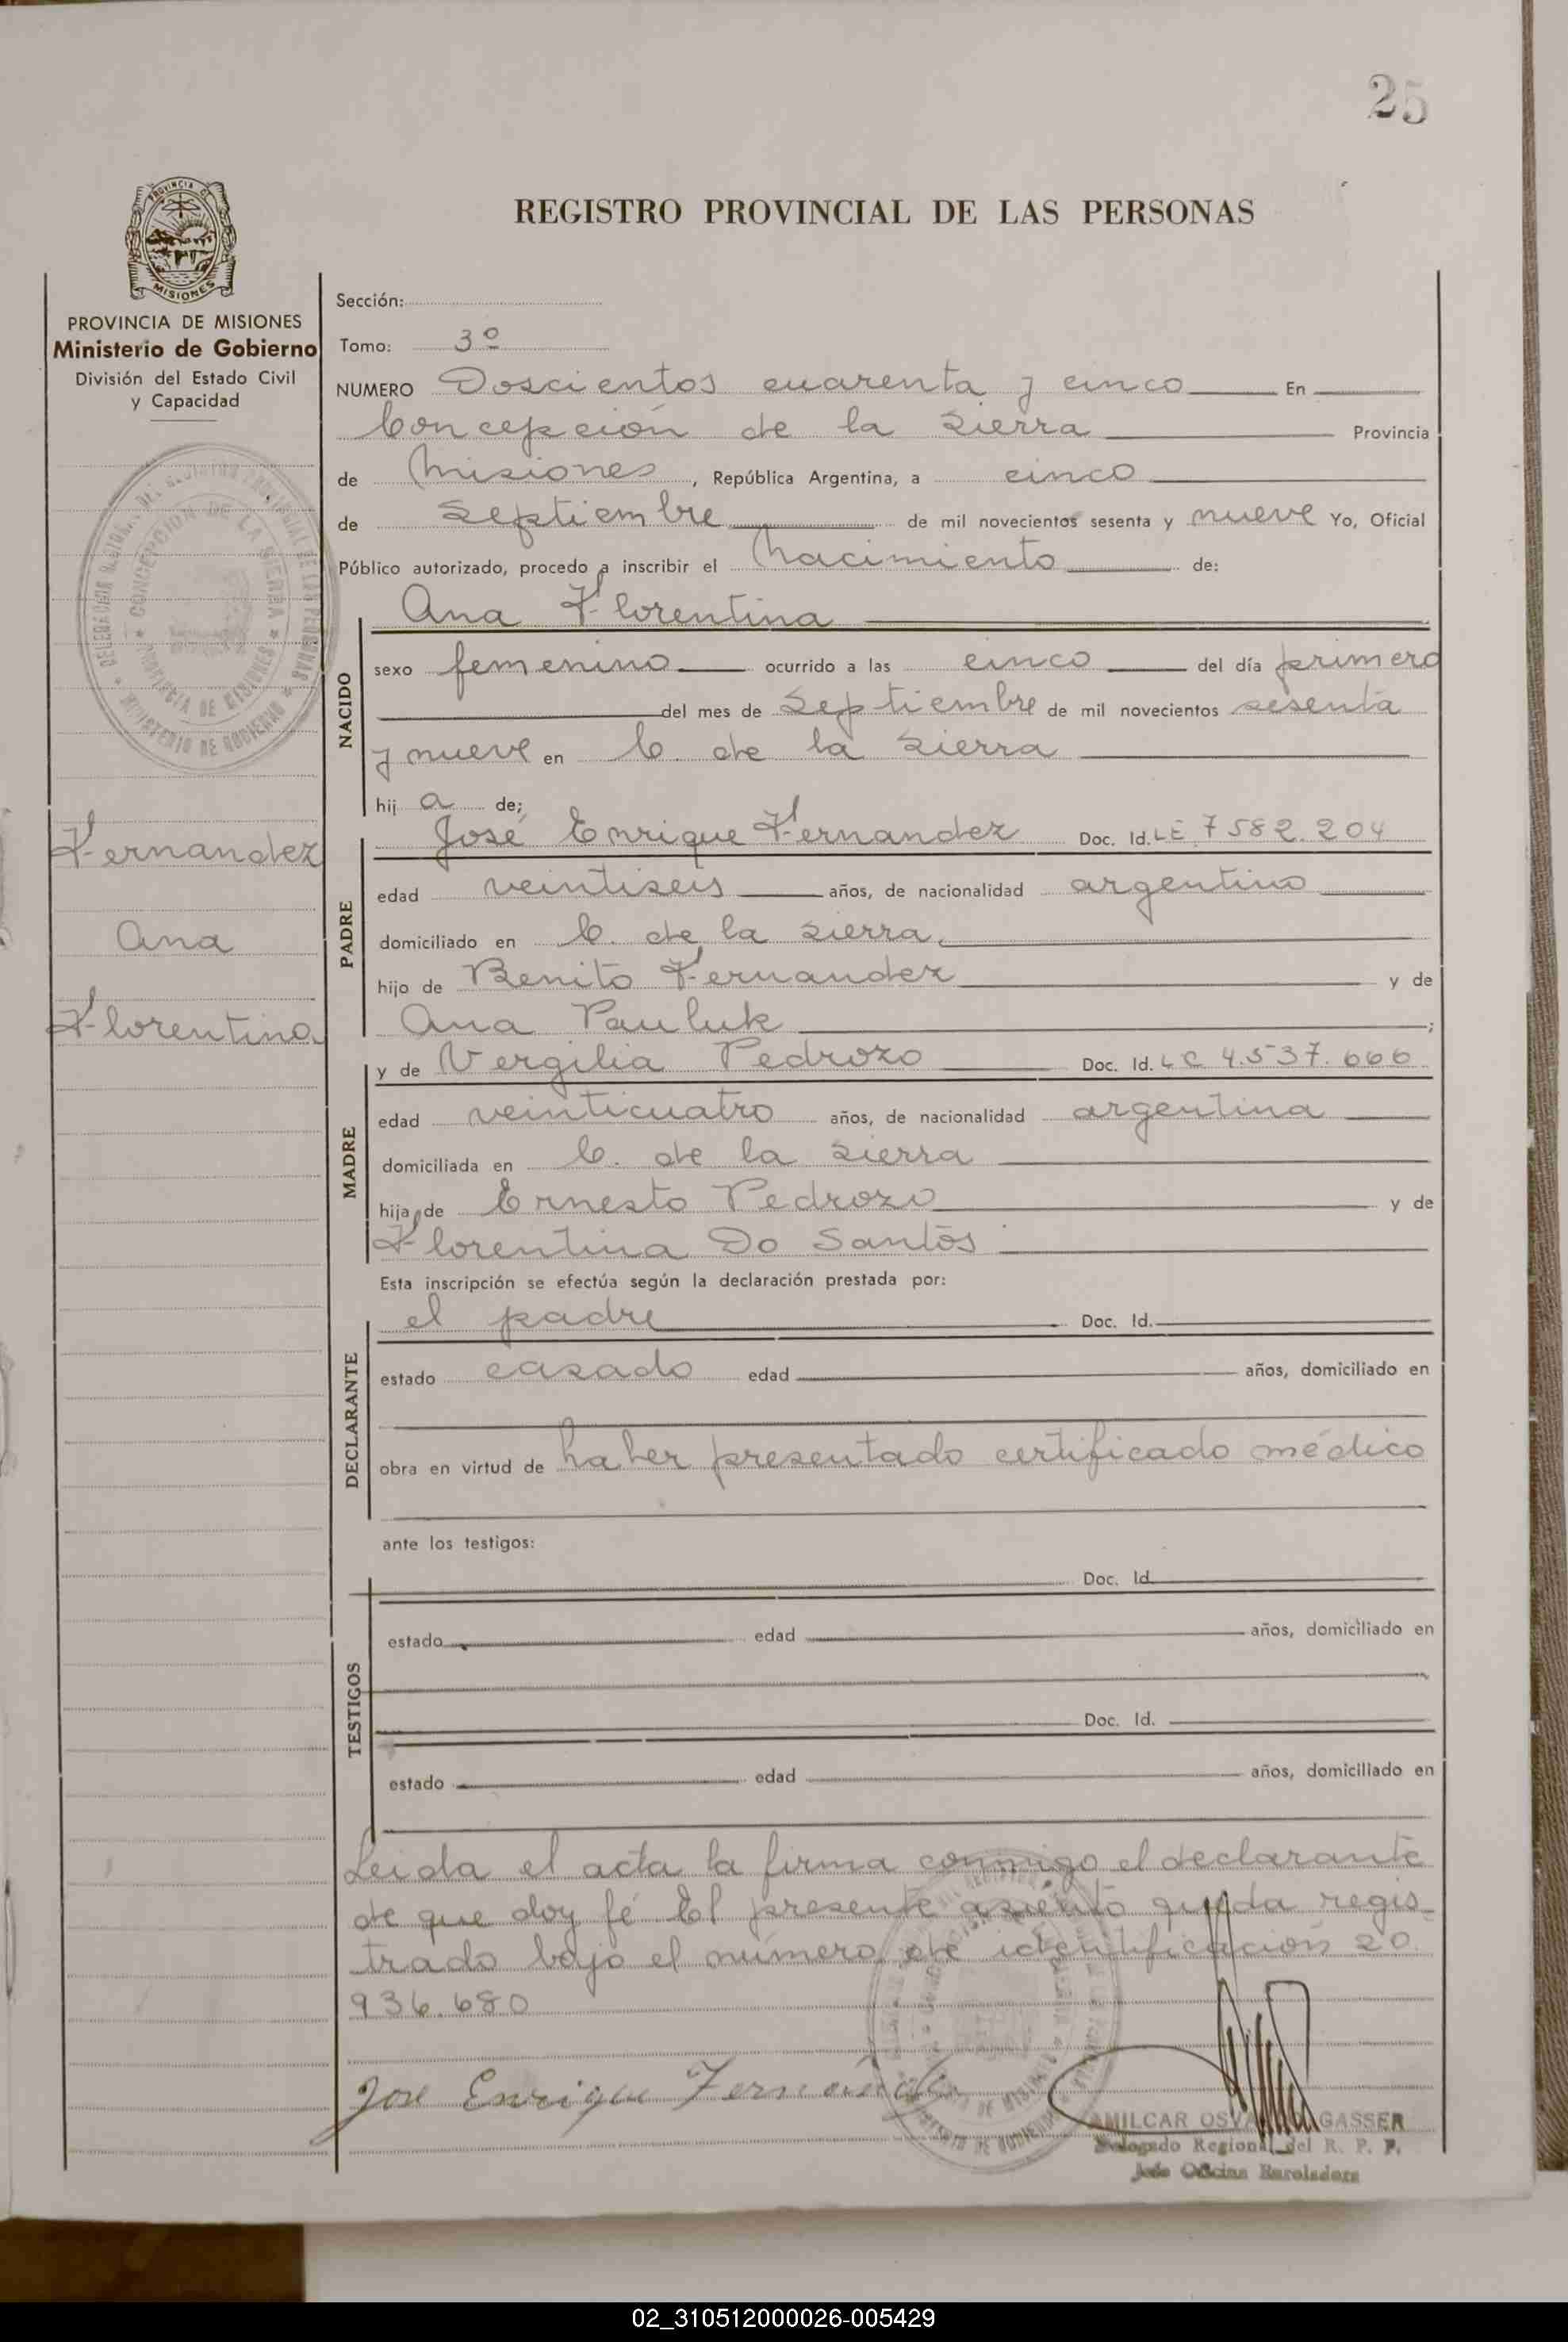 25
PROVINCIA DE
MISIONES
REGISTRO PROVINCIAL DE LAS PERSONAS
PROVINCIA DE MISIONES
Ministerio de Gobierno
División del Estado Civil
y Capacidad
Sección:
Tomo: 3º
NUMERO Doscientos cuarenta y cinco En
Concepción de la Sierra Provincia
de Misiones, República Argentina, a cinco
de Septiembre de mil novecientos sesenta y nueve Yo, Oficial
Público autorizado, procedo a inscribir el Nacimiento de:
CONCEPCION DE LA SIERRA
PROVINCIA DE MISIONES
MINISTERIO DE GOBIERNO
NACIDO
Ana Florentina
sexo femenino ocurrido a las cinco del día primero
del mes de Septiembre de mil novecientos sesenta
y nueve en C. de la Sierra
hij a de;
Fernandez
Ana
Florentina
PADRE
José Enrique Fernandez Doc. Id. LE 7582.204
edad veintiseis años, de nacionalidad argentino
domiciliado en C. de la Sierra,
hijo de Benito Fernandez y de
Ana Pauluk ;
MADRE
y de Vergilia Pedrozo Doc. Id. LC 4.537.666
edad veinticuatro años, de nacionalidad argentina
domiciliada en C. de la Sierra
hija de Ernesto Pedrozo y de
Florentina Do Santos
Esta inscripción se efectúa según la declaración prestada por:
DECLARANTE
el padre Doc. Id.
estado casado edad años, domiciliado en
obra en virtud de haber presentado certificado médico
ante los testigos:
TESTIGOS
Doc. Id.
estado edad años, domiciliado en
Doc. Id.
estado edad años, domiciliado en
Leida el acta la firma conmigo el declarante
de que doy fé El presente asiento queda regis-
trado bajo el número de identificación 20.
936.680
Jose Enrique Fernández
AMILCAR GASSER
Delegado Regional del R. P. P.
Jefe Oficina Enroladora
02_310512000026-005429